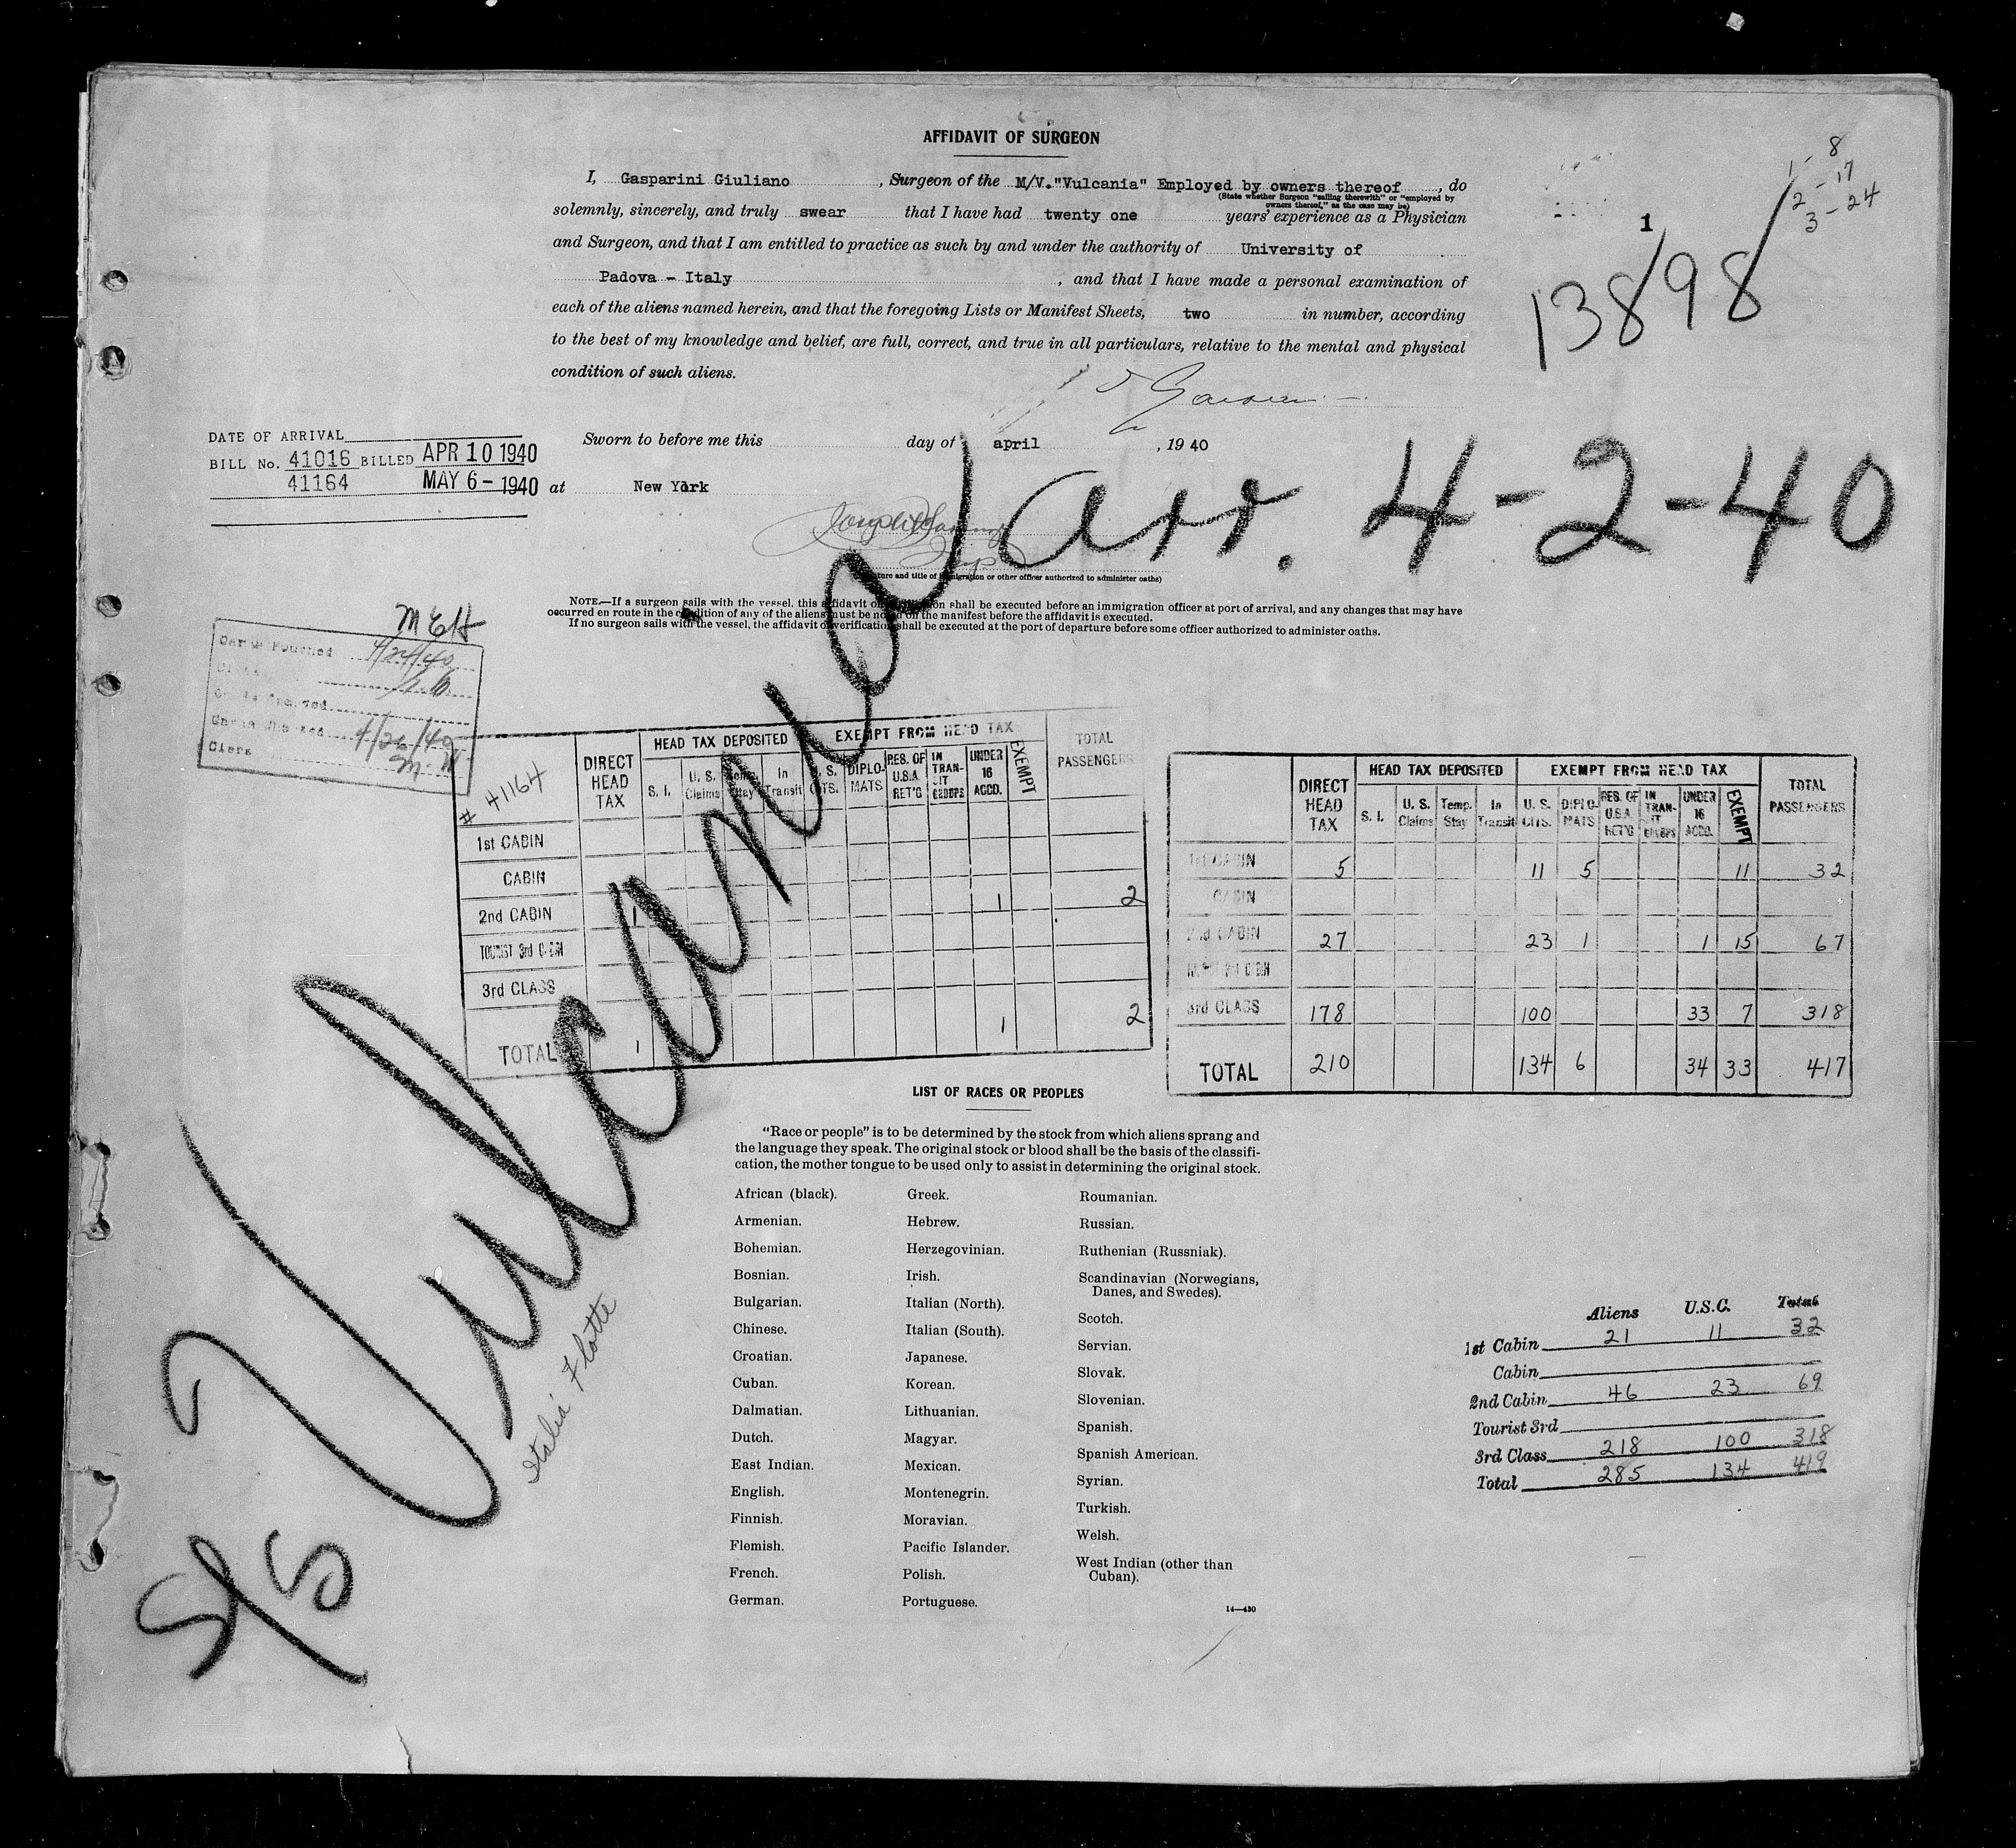 AFFIDAVIT OF SURGEON
I, Gasparini Giuliano, Surgeon of the M/V."Vulcania" Employed by owners thereof, do
(State whether Surgeon "sailing therewith" or "employed by
owners thereof," as the case may be)
solemnly, sincerely, and truly swear that I have had twenty one years' experience as a Physician
and Surgeon, and that I am entitled to practice as such by and under the authority of University of
Padova - Italy, and that I have made a personal examination of
each of the aliens named herein, and that the foregoing Lists or Manifest Sheets, two in number, according
to the best of my knowledge and belief, are full, correct, and true in all particulars, relative to the mental and physical
condition of such aliens.
1 - 8
2 - 17
3 - 24
1
13898
DATE OF ARRIVAL
BILL No. 41016 BILLED APR 10 1940
41164 MAY 6 - 1940
Sworn to before me this day of april, 1940
at New York
arr. 4-2-40
S/S Vulcania
Italia Flotte
NOTE.—If a surgeon sails with the vessel, this affidavit shall be executed before an immigration officer at port of arrival, and any changes that may have
occurred en route in the condition of any of the aliens must be noted on the manifest before the affidavit is executed.
If no surgeon sails with the vessel, the affidavit of verification shall be executed at the port of departure before some officer authorized to administer oaths.
MEH
4/24/40
4/26/40
M.W.
Clerk
# 41164
DIRECT HEAD TAX HEAD TAX DEPOSITED EXEMPT FROM HEAD TAX TOTAL PASSENGERS
S. I. U. S. Claims Temp. Stay In Transit U. S. CITS. DIPLO-MATS RES. OF U.S.A. RET'G IN TRAN-SIT GROUPS UNDER 16 ACCD. EXEMPT
1st CABIN
CABIN
2nd CABIN 1 1 2
TOURIST 3rd CABIN
3rd CLASS
TOTAL 1 1 2
DIRECT HEAD TAX HEAD TAX DEPOSITED EXEMPT FROM HEAD TAX TOTAL PASSENGERS
S. I. U. S. Claims Temp. Stay In Transit U. S. CITS. DIPLO-MATS RES. OF U.S.A. RET'G IN TRAN-SIT GROUPS UNDER 16 ACCD. EXEMPT
1st CABIN 5 11 5 11 32
CABIN
2nd CABIN 27 23 1 1 15 67
3rd CLASS 178 100 33 7 318
TOTAL 210 134 6 34 33 417
LIST OF RACES OR PEOPLES
"Race or people" is to be determined by the stock from which aliens sprang and
the language they speak. The original stock or blood shall be the basis of the classifi-
cation, the mother tongue to be used only to assist in determining the original stock.
African (black).
Armenian.
Bohemian.
Bosnian.
Bulgarian.
Chinese.
Croatian.
Cuban.
Dalmatian.
Dutch.
East Indian.
English.
Finnish.
Flemish.
French.
German.
Greek.
Hebrew.
Herzegovinian.
Irish.
Italian (North).
Italian (South).
Japanese.
Korean.
Lithuanian.
Magyar.
Mexican.
Montenegrin.
Moravian.
Pacific Islander.
Polish.
Portuguese.
Roumanian.
Russian.
Ruthenian (Russniak).
Scandinavian (Norwegians,
Danes, and Swedes).
Scotch.
Servian.
Slovak.
Slovenian.
Spanish.
Spanish American.
Syrian.
Turkish.
Welsh.
West Indian (other than
Cuban).
14—430
Aliens U.S.C. Total
1st Cabin 21 11 32
Cabin
2nd Cabin 46 23 69
Tourist 3rd
3rd Class 218 100 318
Total 285 134 419